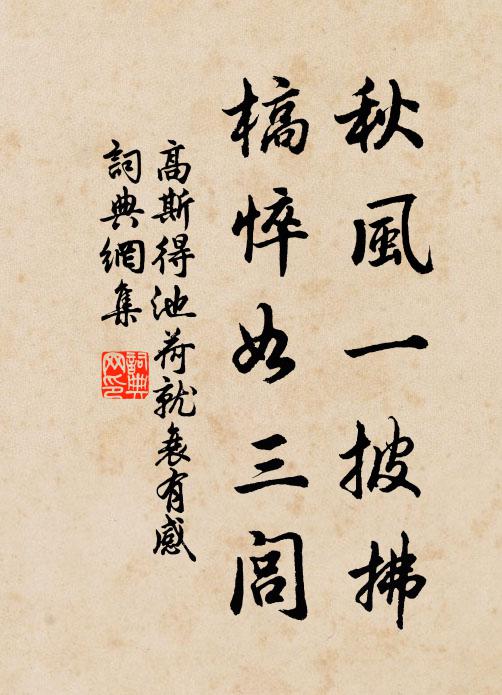 秋風一披拂
槁悴如三閭
高斯得池荷就衰有感
詞典網集
詞典网印